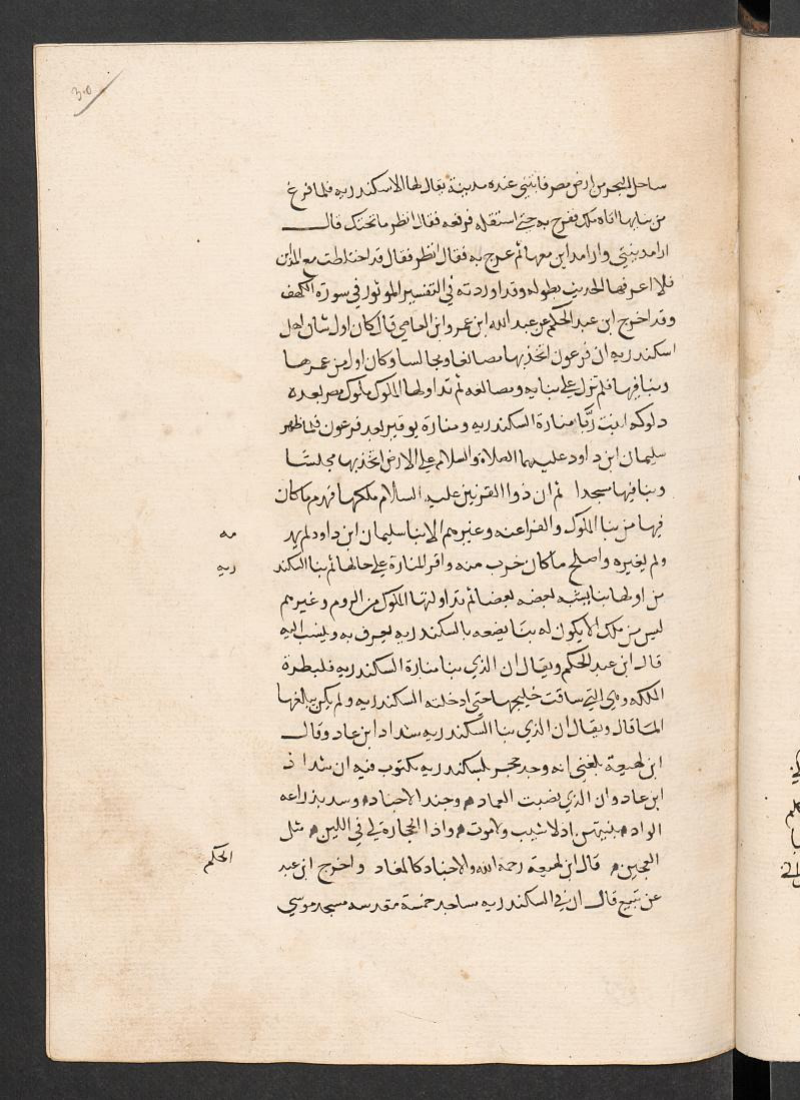 30
ساحل البحر من ارض مصر فابتني عنده مدينة يقال لها الاسكندريه فلما فرغ
من بنايها اتاه ملك فعرج به حتي استقله فرفعه فقال انظر ما تحتك قال
ارا مدينتي وارا مداين معها ثم عرج به فقال انظر فقال قد اختلطت مع المداين
فلا اعرفها الحديث بطوله وقد اوردته في التفسير الموثور في سورة الكهف
وقد اخرج ابن عبد الحكم عن عبد الله ابن عمر وابن العاصي قال كان اول شان اهل
اسكندريه ان فرعون اتخذ بها مصانعا ومجالسا وكان اول من عمرها
وبنا فيها فلم تزل علي بنايه ومصانعه ثم تداولها الملوك ملوك مصر بعده
دلوكه ابنت ربا منارة السكندريه ومنارة بوقير بعد فرعون فلما ظهر
سليمان ابن داود عليهما الصلاة والسلام علي الارض اتخذ بها مجلسا
وبنا فيها مسجدا ثم ان ذوا القرنين عليه السلام ملكها فهدم ما كان
فيها من بنا الملوك والفراعنه وغيرهم الا بنا سليمان ابن داود لم يهد
مه
ولم يغيره واصلح ما كان خرب منه واقر المنارة علي حالها ثم بنا السكند
ريه
من اولها بنا يشبه بعضه بعضا ثم تداولتها الملوك من الروم وغيرهم
ليس من ملك الا يكون له بنا يضعه بالسكندريه يعرف به وينسب اليه
قال ابن عبد الحكم ويقال ان الذي بنا منارة السكندريه قلبطرة
الملكه وهي التي ساقت خليجها حتي ادخلته السكندريه ولم يكن يبلغها
الما قال ويقال ان الذي بنا السكندريه شداد ابن عاد وقال
ابن لهيعة بلغني انه وجد حجر بلسكندريه مكتوب فيه ان شداد
ابن عاد وان الذي نصبت العماد وجند الاجناد وسد بزراعه
الواد اذلا شيب ولا موت واذا الحجارة لي في اللين مثل
العجين قال ابن لهيعة رحمه الله والاجناد كالمغاد واخرج ابن عبد
الحكم
عن تبيع قال ان في السكندريه مساجد خمسة مقدسه مسجد موسي